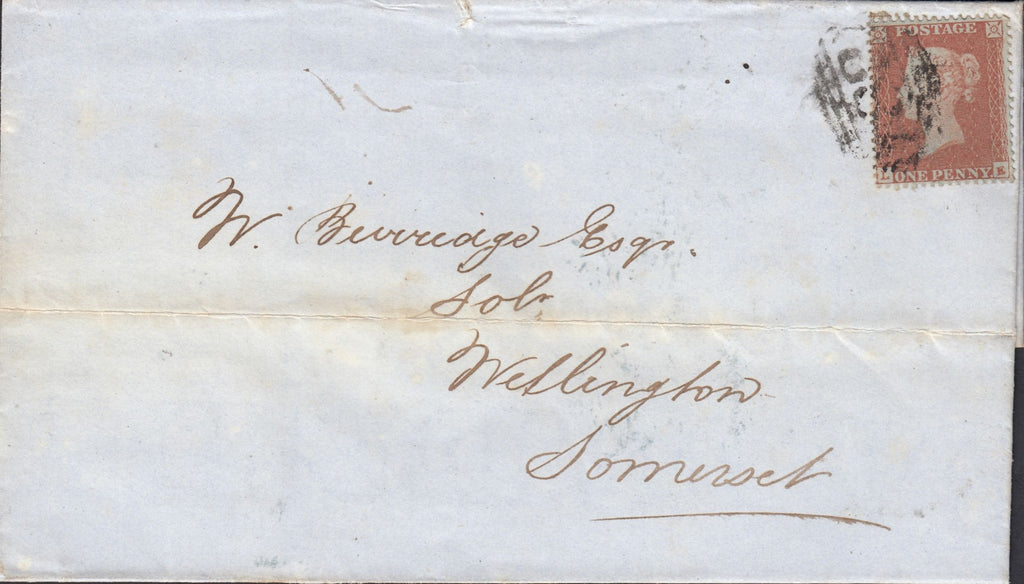 POSTAGE
ONE PENNY
W. Burridge Esqr.
Solr
Wellington
Somerset